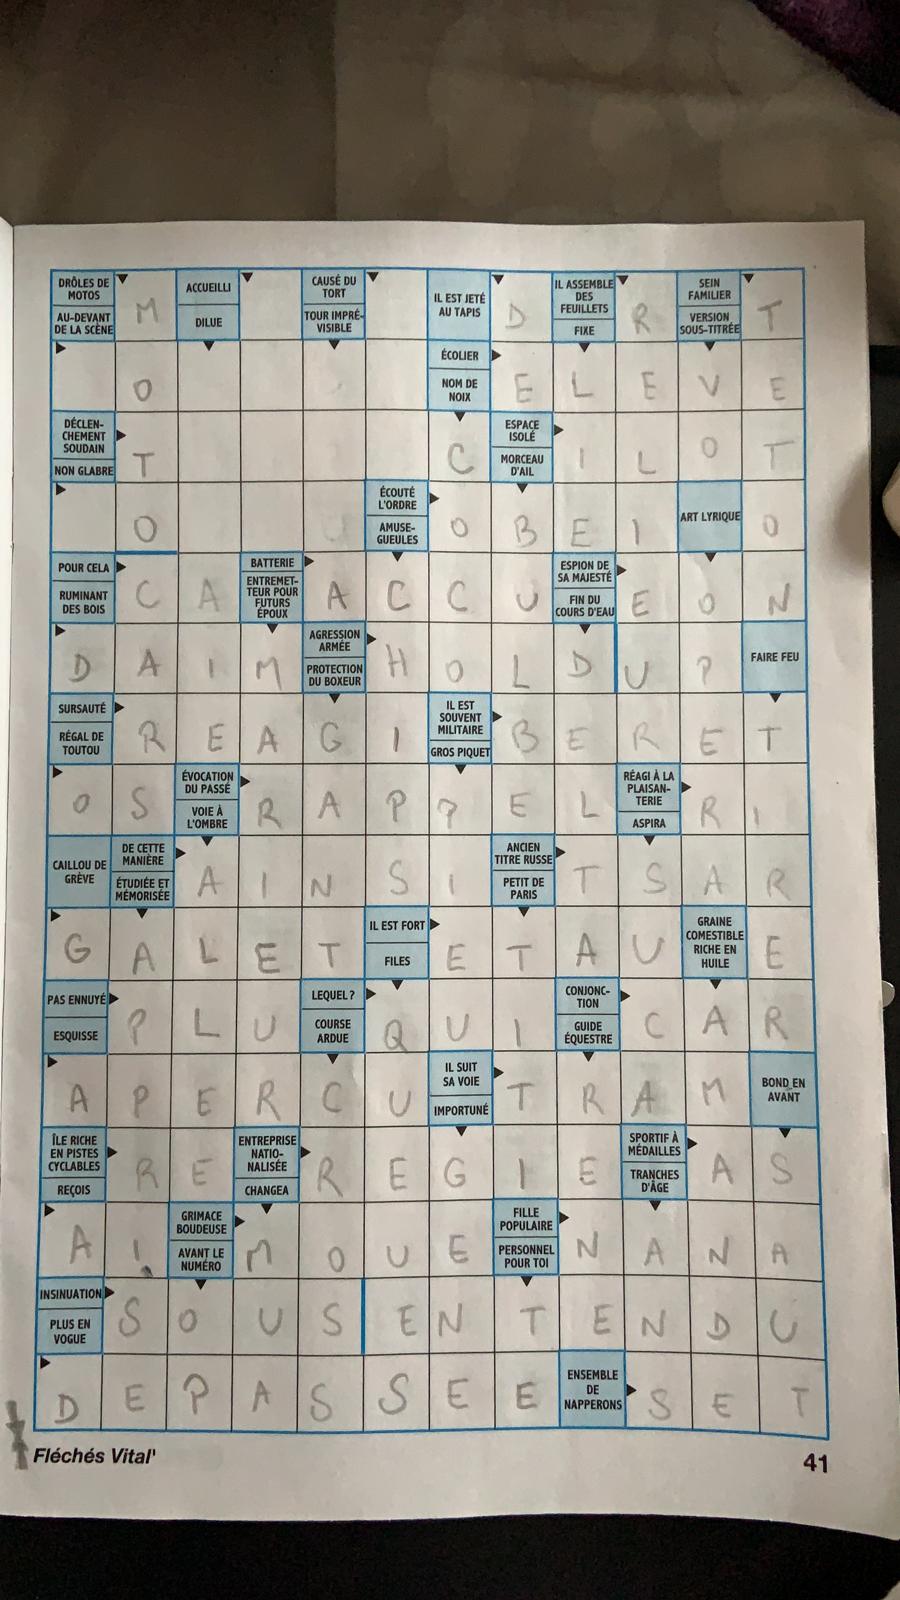 DRÔLES DE MOTOS
AU-DEVANT DE LA SCÈNE
M
ACCUEILLI
DILUE
CAUSÉ DU TORT
TOUR IMPRÉ-VISIBLE
IL EST JETÉ AU TAPIS
D
IL ASSEMBLE DES FEUILLETS
FIXE
R
SEIN FAMILIER
VERSION SOUS-TITRÉE
T
O
ÉCOLIER
NOM DE NOIX
E L E V E
DÉCLEN-CHEMENT SOUDAIN
NON GLABRE
T
C
ESPACE ISOLÉ
MORCEAU D'AIL
I L O T
O
ÉCOUTÉ L'ORDRE
AMUSE-GUEULES
O B E I
ART LYRIQUE
O
POUR CELA
RUMINANT DES BOIS
C A
BATTERIE
ENTREMET-TEUR POUR FUTURS ÉPOUX
A C C U
ESPION DE SA MAJESTÉ
FIN DU COURS D'EAU
E O N
D A I M
AGRESSION ARMÉE
PROTECTION DU BOXEUR
H O L D U P
FAIRE FEU
SURSAUTÉ
RÉGAL DE TOUTOU
R E A G I
IL EST SOUVENT MILITAIRE
GROS PIQUET
B E R E T
O S
ÉVOCATION DU PASSÉ
VOIE À L'OMBRE
R A P P E L
RÉAGI À LA PLAISAN-TERIE
ASPIRA
R I
CAILLOU DE GRÈVE
DE CETTE MANIÈRE
ÉTUDIÉE ET MÉMORISÉE
A I N S I
ANCIEN TITRE RUSSE
PETIT DE PARIS
T S A R
G A L E T
IL EST FORT
FILES
E T A U
GRAINE COMESTIBLE RICHE EN HUILE
E
PAS ENNUYÉ
ESQUISSE
P L U
LEQUEL ?
COURSE ARDUE
Q U I
CONJONC-TION
GUIDE ÉQUESTRE
C A R
A P E R C U
IL SUIT SA VOIE
IMPORTUNÉ
T R A M
BOND EN AVANT
ÎLE RICHE EN PISTES CYCLABLES
REÇOIS
R E
ENTREPRISE NATIO-NALISÉE
CHANGEA
R E G I E
SPORTIF À MÉDAILLES
TRANCHES D'ÂGE
A S
A I
GRIMACE BOUDEUSE
AVANT LE NUMÉRO
M O U E
FILLE POPULAIRE
PERSONNEL POUR TOI
N A N A
INSINUATION
PLUS EN VOGUE
S O U S E N T E N D U
D E P A S S E E
ENSEMBLE DE NAPPERONS
S E T
Fléchés Vital'
41